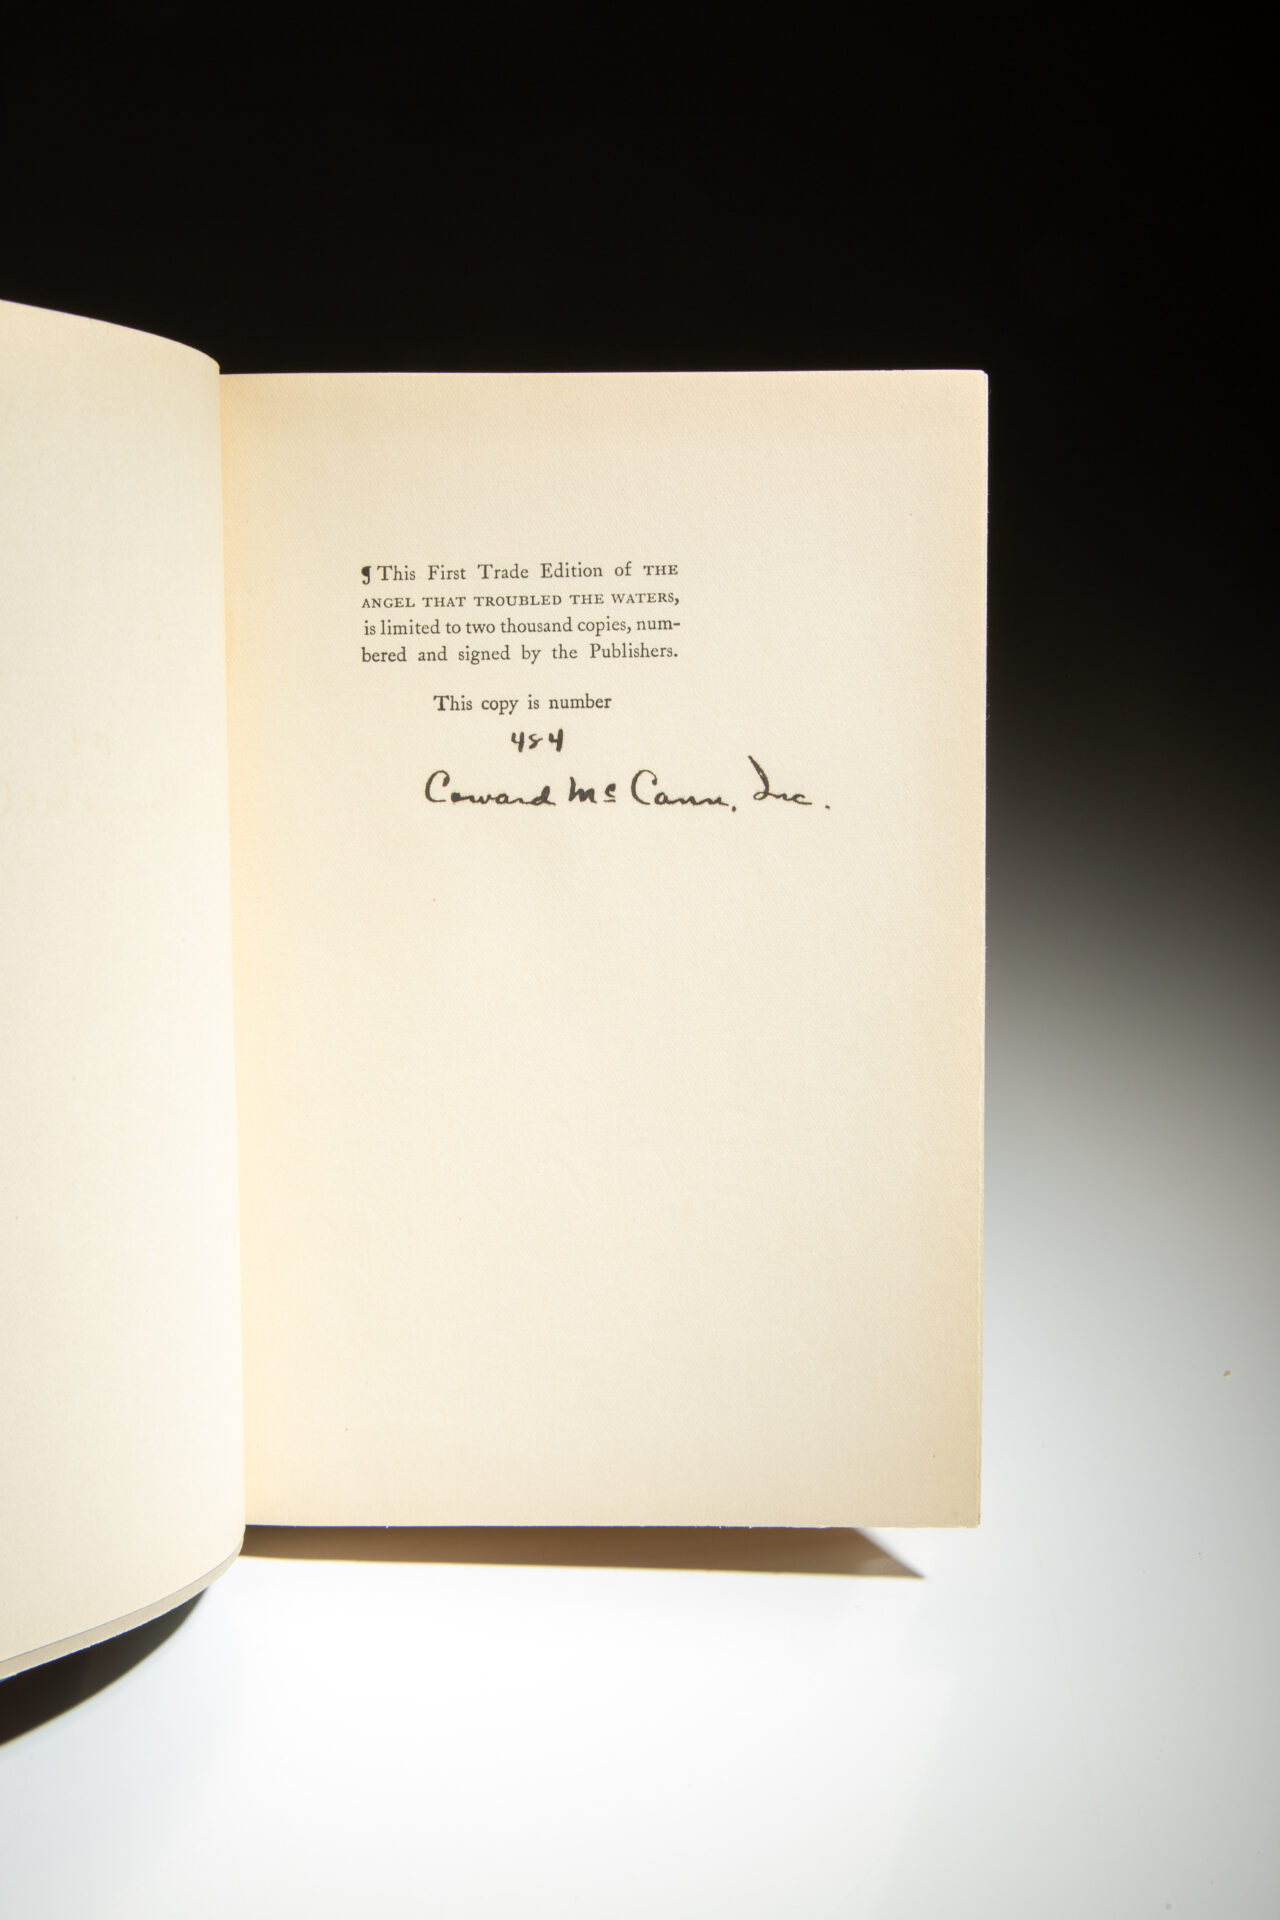 ¶ This First Trade Edition of THE
ANGEL THAT TROUBLED THE WATERS,
is limited to two thousand copies, num-
bered and signed by the Publishers.
This copy is number
484
Coward Mc Cann, Inc.